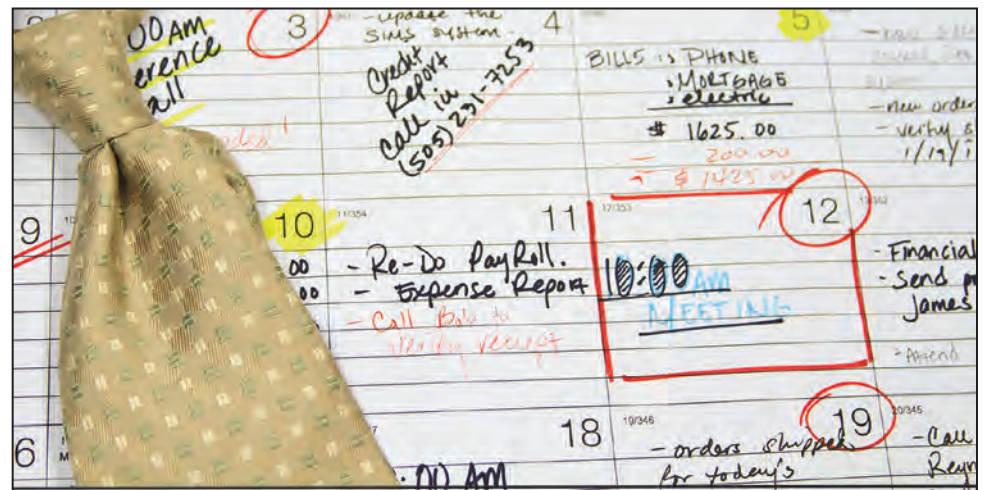 00 AM
erence
all
3
- update the
SIMS system.
Credit
Report
Call in
(505) 231-7253
4
BILLS
PHONE
MORTGAGE
electric
$ 1625.00
- 200.00
$ 1425.00
5
- new order
- verify
1/19/1
9
10
11/354
00
00
- Re-Do PayRoll.
- Expense Report
- Call Bob to
receipt
11
17/353
12
10:00 AM
MEETING
- Financial
- Send
James
Attend
6
18
19/346
- orders shipped
for today's
19
20/345
- Call
:00 AM